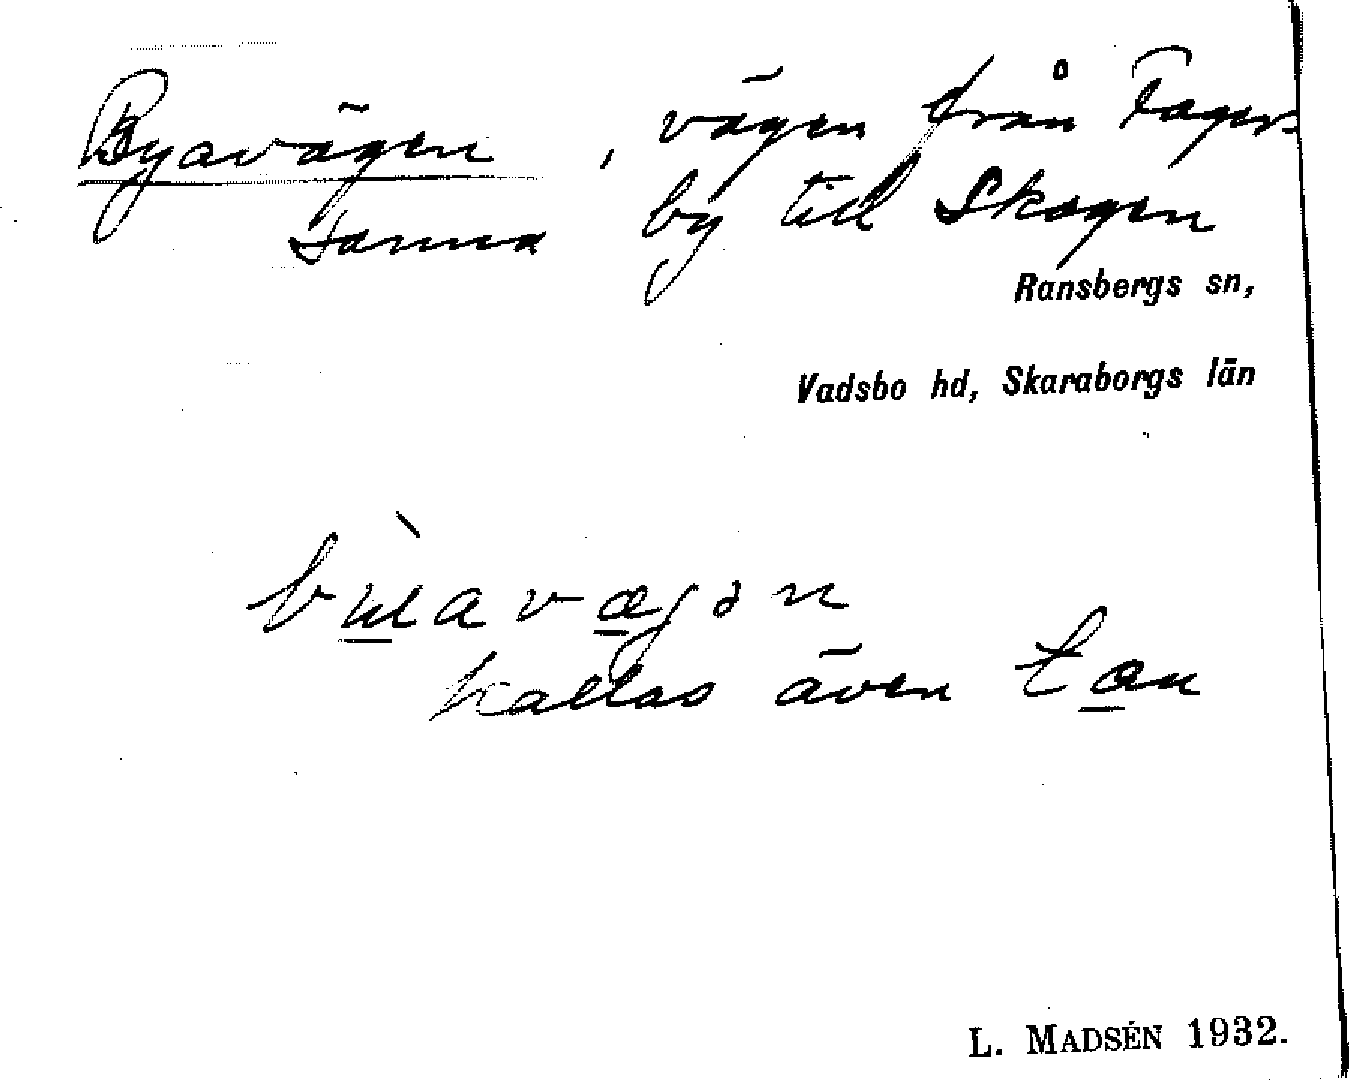 Byavägen, vägen från Fagers-
by till Skogen
Ransbergs sn,
Vadsbo hd, Skaraborgs län
kallas även
L. MADSÉN 1932.